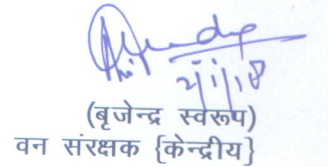 2/1/18
(बृजेन्द्र स्वरूप)
वन संरक्षक {केन्द्रीय}